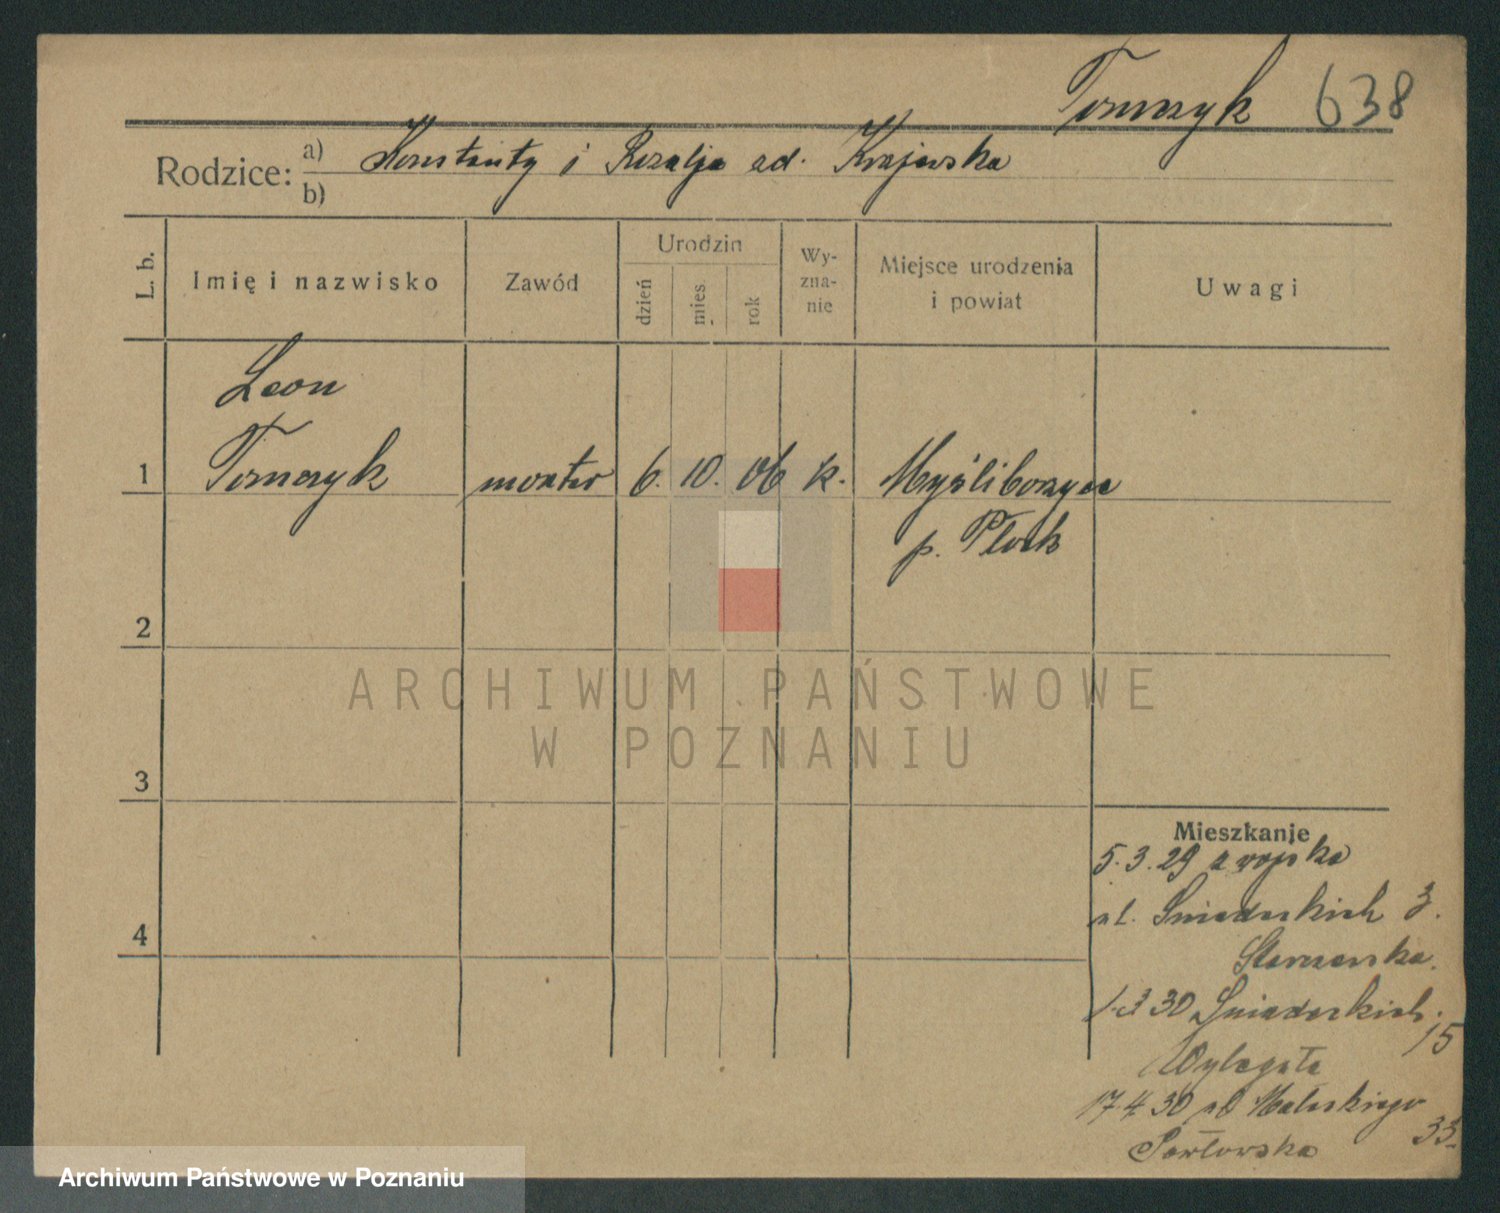 Tomczyk 638
Rodzice: a) Konstanty i Rozalja ad. Krajewska
b)
L. b.
Imię i nazwisko
Zawód
Urodzin
dzień
mies.
rok
Wy-
zna-
nie
Miejsce urodzenia
i powiat
Uwagi
Leon
1 Tomczyk monter 6. 10. 06 k. Myśliborzyce
p. Płock
2
ARCHIWUM PAŃSTWOWE
W POZNANIU
3
Mieszkanie
5.3.29 z wojska
ul. Śniadeckich 3.
4
1.3 30 Śniadeckich.
15
Wylegała
17 4 30 ul Małeckiego
33
Pawłowska
Archiwum Państwowe w Poznaniu